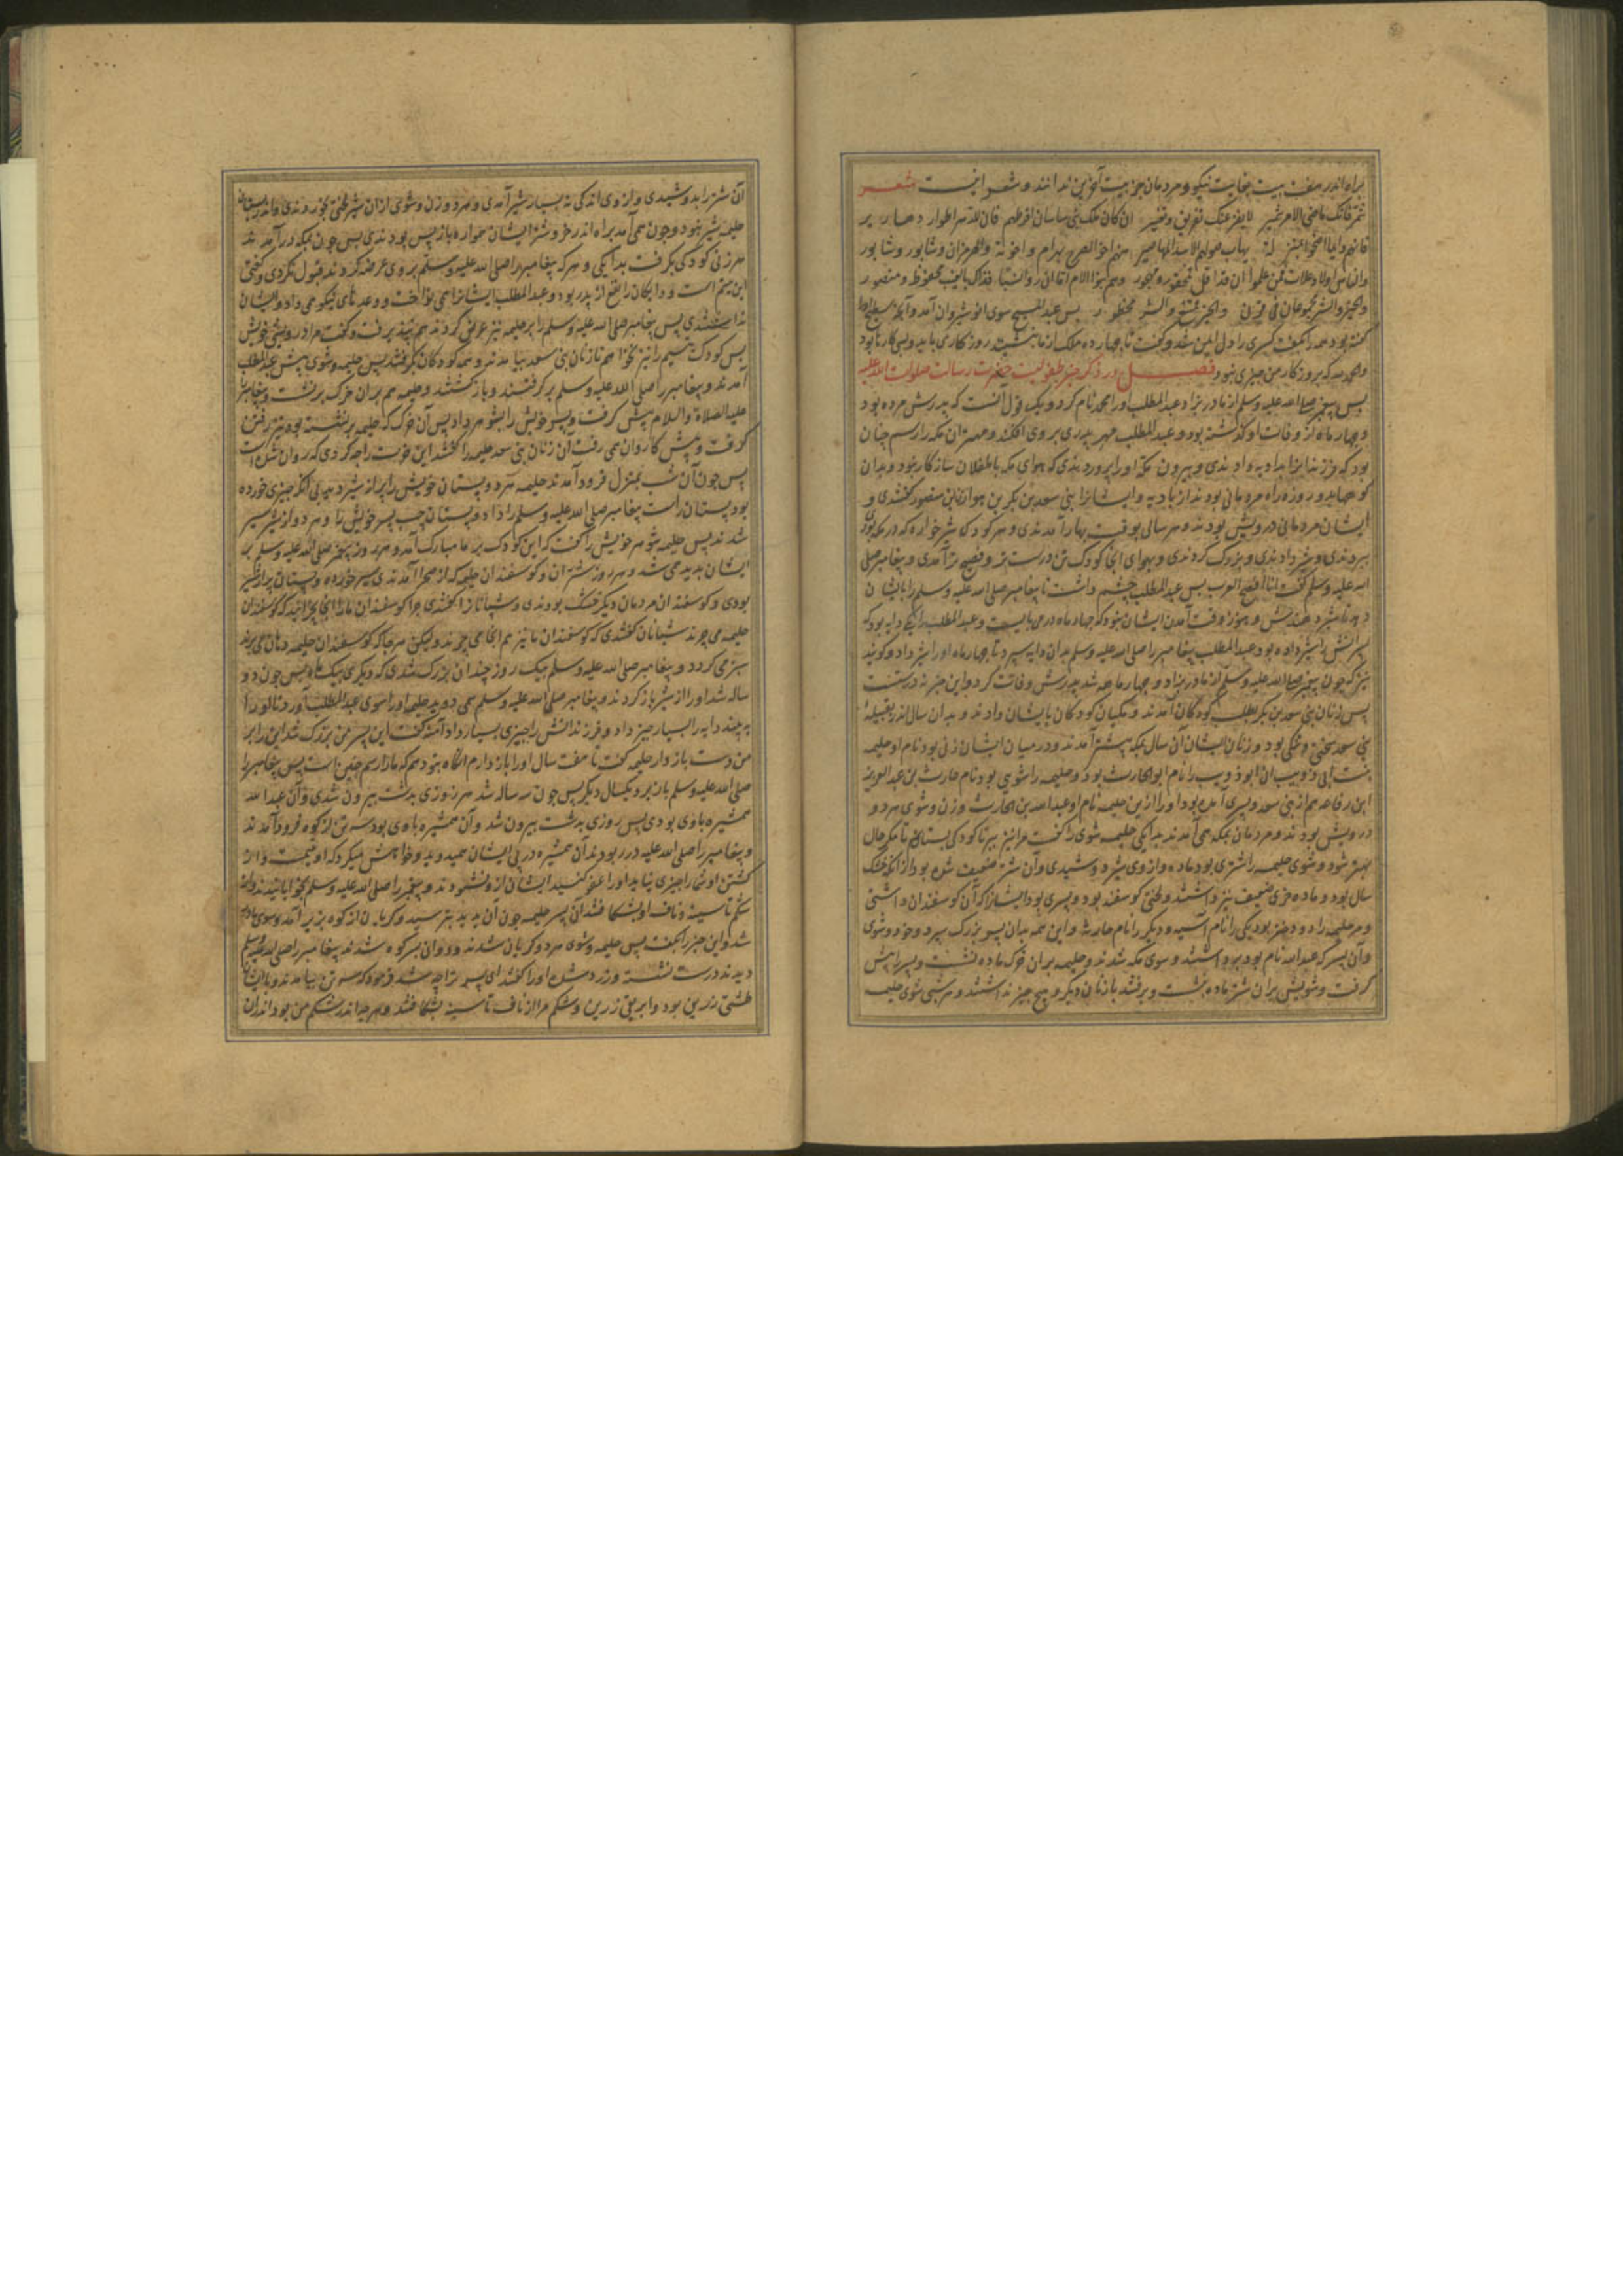 براه اندر هفت بیت بغایت نیکو و مردمان جز بیت آخرین ندانند و شعر اینست شعر
شمر فانک ماضی الامر شمیر لا یفزعنک تفریق و تغییر ان کان ملک بنی ساسان افرطهم فان للدهر اطوار دهاریر
منهم اخو الصرح بهرام و اخوته و الهرمزان و شابور و شابور
و الناس اولاد علات فمن علموا ان قد اقل فمحقور و مهجور و هم بنو الام اما ان راوا نشبا فذاک بالغیب محفوظ و منصور
و الخیر و الشر مجموعان فی قرن و الخیر متبع و الشر محظور پس عبدالمسیح سوی انوشیروان آمد و آنچه سطیح او را
گفته بود همه را بگفت کسری را دل ایمن شد و گفت تا چهارده ملک از ما بنشیند روزگاری باید و بسی کارها بود
والحمدلله که بروزگار من چیزی نبود فصل در ذکر خبر طفولیت حضرت رسالت صلوات الله علیه
پس پیغمبر صلی الله علیه وسلم از مادر بزاد عبدالمطلب او را محمد نام کرد و یک قول آنست که پدرش مرده بود
و چهار ماه از وفات او گذشته بود و عبدالمطلب مهر پدری بر وی افکند و مهتران مکه را رسم چنان
بود که فرزندانرا بدایه دادندی و بیرون مکه او را پروردندی که هوای مکه با طفلان سازگار نبود و بدان
کوهها بدو روزه راه مردمانی بودند از بادیه و ایشانرا بنی سعد بن بکر بن هوازن بن منصور گفتندی و
ایشان مردمانی درویش بودند و هر سالی بوقت بهار آمدندی و هر کودک شیرخواره که در مکه بودی
ببردندی و شیر دادندی و بزرگ کردندی و بهوای آنجا کودک تن درست تر و فصیح تر آمدی و پیغامبر صلی
الله علیه وسلم گفت انا افصح العرب پس عبدالمطلب چشم داشت تا پیغامبر صلی الله علیه وسلم را بایشان
دهد تا شیر دهندش و هنوز وقت آمدن ایشان نبود که چهار ماه در می بایست و عبدالمطلب را دایه بود که
پسرانش را شیر داده بود عبدالمطلب پیغامبر را صلی الله علیه وسلم بدان دایه سپرد تا چهار ماه او را شیر داد و گویند
نیز که چون پیغمبر صلی الله علیه وسلم از مادر بزاد و چهار ماهه شد پدرش وفات کرد و این خبر نه درستست
پس زنان بنی سعد بن بکر بطلب کودکان آمدند و مکیان کودکان بایشان دادند و بدان سال اندر قبیله
بنی سعد سختی و تنگی بود و زنان ایشان آن سال بمکه پیشتر آمدند و در میان ایشان زنی بود نام او حلیمه
بنت ابی ذویب ان ابو ذویب را نام ابو الحارث بود و حلیمه را شویی بود نام حارث بن عبدالعزیز
ابن رفاعه هم از بنی سعد و پسری آمده بود او را از این حلیمه نام او عبدالله بن الحارث و زن و شوی هر دو
درویش بودند و مردمان بمکه همی آمدند بدایگی حلیمه شوی را گفت مرا نیز ببر تا کودکی بستانم تا مگر حال
بهتر شود و شوی حلیمه را شتری بود ماده و از وی شیر دوشیدی و آن شتر ضعیف شده بود از آنکه خشک
سال بود و ماده خری ضعیف نیز داشتند و لختی گوسفند بود و پسری بود ایشانرا که آن گوسفندان داشتی
و مر حلیمه را دو دختر بود یکی را نام آسیه و دیگر را نام حارثه و این همه بدان پسر بزرگ سپرد و خود و شوی
و آن پسر که عبدالله نام بود برداشتند و سوی مکه شدند و حلیمه بر ان خرک ماده نشست و پسر را پیش
گرفت و شویش بر ان شتر ماده نشست و برفتند با زنان دیگر و هیچ چیز نداشتند و هر شبی شوی حلیمه
آن شتر را بدوشیدی و از وی اندکی نه بسیار شیر آمدی و هر دو زن و شوی از ان شیر لختی بخوردندی و اندر پستان
حلیمه شیر نبود و چون همی آمد براه اندر خر و شتر ایشان همواره باز پس بودندی پس چون بمکه در آمدند
هر زنی کودکی بگرفت بدایگی و هر که پیغامبر را صلی الله علیه وسلم بر وی عرضه کردند قبول نکردی و گفتی
این یتیم است و دایگان را نفع از پدر بود و عبدالمطلب ایشانرا همی نواخت و وعدهای نیکو می داد و ایشان
نپذیرفتندی پس پیغامبر صلی الله علیه وسلم را بر حلیمه نیز عرض کردند هم نپذیرفت و گفت مرا درویشی خویش
بس کودک یتیم را نیز نخواهم تا زنان بنی سعد بیامدند و همه کودکان بگرفتند پس حلیمه و شوی پیش عبدالمطلب
آمدند و پیغامبر را صلی الله علیه وسلم بر گرفتند و باز گشتند و حلیمه هم بران خرک بر نشست و پیغامبر
علیه الصلاة والسلام پیش گرفت و پسر خویش را بشو هر داد پس آن خرک که حلیمه بر نشسته بود تیز رفتن
گرفت و پیش کاروان همی رفت آن زنان بنی سعد حلیمه را گفتند این خرت را چه کردی که روان شده است
پس چون آن شب بمنزل فرود آمدند حلیمه هر دو پستان خویش را پر از شیر دید بی آنکه چیزی خورده
بود پستان راست پیغامبر صلی الله علیه وسلم را داد و پستان چپ پسر خویش را و هر دو از شیر سیر
شدند پس حلیمه شوهر خویش را گفت که این کودک بر ما مبارک آمد و هر روز پیغمبر صلی الله علیه وسلم بر
ایشان پدید می شد و هر روز شتران و گوسفندان حلیمه که از صحرا آمدندی سیر خورده و پستان پر از شیر
بودی و گوسفندان مردمان دیگر خشک بودندی و شبانانرا گفتندی چرا گوسفندان ما را آنجا نچرانید که گوسفندان
حلیمه می چرند شبانان گفتندی که گوسفندان ما نیز هم آنجا می چرند و لیکن هر جا که گوسفندان حلیمه دهان می برند
سبز می گردد و پیغامبر صلی الله علیه وسلم بیک روز چندان بزرگ شدی که دیگری بیک ماه پس چون دو
ساله شد او را از شیر باز کردند و پیغامبر صلی الله علیه وسلم می دوید حلیمه او را سوی عبدالمطلب آورد تا او را
به بیند دایه را بسیار چیز داد و فرزندانش را چیزی بسیار داد آمنه گفت این پسر من بزرگ شد این را بر
من دست باز دار حلیمه گفت تا هفت سال او را باز دارم آنگاه بتو دهم که ما را رسم چنین است پس پیغامبر را
صلی الله علیه وسلم باز ببرد یکسال دیگر پس چون سه ساله شد هر روزی بدشت بیرون شدی و آن عبدالله
همشیره باوی بودی پس روزی بدشت بیرون شد و آن همشیره باوی بود سه تن از کوه فرود آمدند
و پیغامبر را صلی الله علیه در ربودند آن همشیره در پی ایشان همی دوید و خواهش میکرد که او یتیمست و از
کشتن او شما را چیزی نیاید او را عفو کنید ایشان از و نشنودند و پیغمبر را صلی الله علیه وسلم بخوابانیدند و از
شکم تا سینه و ناف او بشکافتند آن پسر حلیمه چون آن بدید بترسید و گریان از کوه بزیر آمد و سوی مادر
شد و این خبر را بگفت پس حلیمه و شوی هر دو گریان شدند و دوان بسر کوه شدند پیغامبر را صلی الله علیه وسلم
دیدند درست نشسته و زرد شده او را گفتند ای پسر ترا چه شد فرمود که سه تن بیامدند و با ایشان
طشتی زرین بود و ابریقی زرین و شکم مرا از ناف تا سینه بشکافتند و هر چه اندر شکم من بود اندران